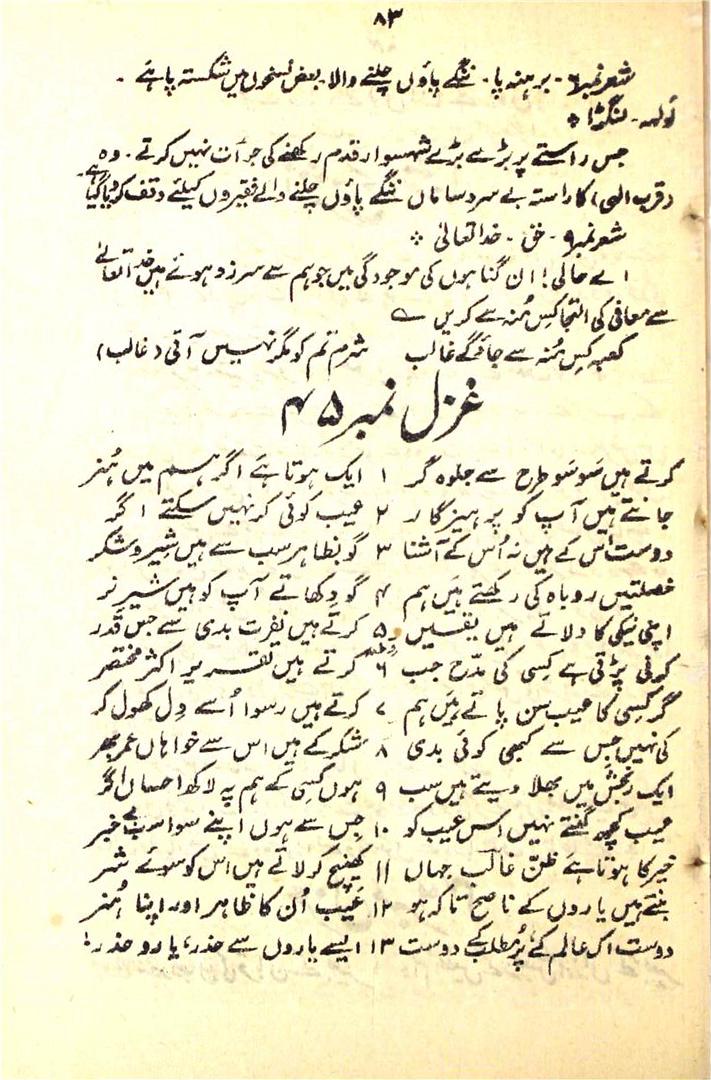 ۸۳
شعر نمبر ۶ - برہنہ پا - ننگے پاؤں چلنے والا - بعض نسخوں میں شکستہ پا ہے -
لنگڑا *
جس راستے پر بڑے بڑے شہسوار قدم رکھنے کی جرأت نہیں کرتے - وہ
(قرب الٰہی) کا راستہ بے سروسامان ننگے پاؤں چلنے والے فقیروں کیلئے وقف کر دیا گیا ہے
شعر نمبر ۹ - حق - خدا تعالیٰ *
اے حالی! ان گناہوں کی موجودگی میں جو ہم سے سرزد ہوئے ہیں خدا تعالےٰ
سے معافی کی التجا کس مُنہ سے کریں ؎
کعبہ کس مُنہ سے جاؤ گے غالب شرم تم کو مگر نہیں آتی (غالب)
غزل نمبر ۴۵
کرتے ہیں سَو سَو طرح سے جلوہ گر ۱ ایک ہوتا ہَے اگر ہم میں ہُنر
جانتے ہیں آپ کو پرہیزگار ۲ عیب کوئی کر نہیں سکتے اگر
دوست اُس کے ہیں نہ اُس کے آشنا ۳ گو بظاہر سب سے ہیں شیر و شکر
خصلتیں روباہ کی رکھتے ہَیں ہم ۴ گو دِکھاتے آپ کو ہیں شیرِ نر
اپنی نیکی کا دلاتے ہیں یقیں ۵ کرتے ہیں نفرت بدی سے جس قدر
کرنی پڑتی ہے کسی کی مدح جب ۶ کرتے ہیں تقریر اکثر مختصر
گر کسی کا عیب سن پاتے ہَیں ہم ۷ کرتے ہیں رسوا اُسے دِل کھول کر
کی نہیں جس سے کبھی کوئی بدی ۸ شکر کے ہیں اس سے خواہاں عمر بھر
ایک رنجش میں بھلا دیتے ہیں سب ۹ ہوں کسی کے ہم پہ لاکھ احسان اگر
عیب کچھ گنتے نہیں اس عیب کو ۱۰ جس سے ہوں اپنے سوا سب بے خبر
خیر کا ہوتا ہَے ظنّ غالب جہاں ۱۱ کھینچ کر لاتے ہیں اس کو سوئے شر
بنتے ہیں یاروں کے ناصح تاکہ ہو ۱۲ عَیب اُن کا ظاہر اور اپنا ہُنر
دوست اک عالم کے پُر مطلب کے دوست ۱۳ ایسے یاروں سے حذر، یارو حذر!